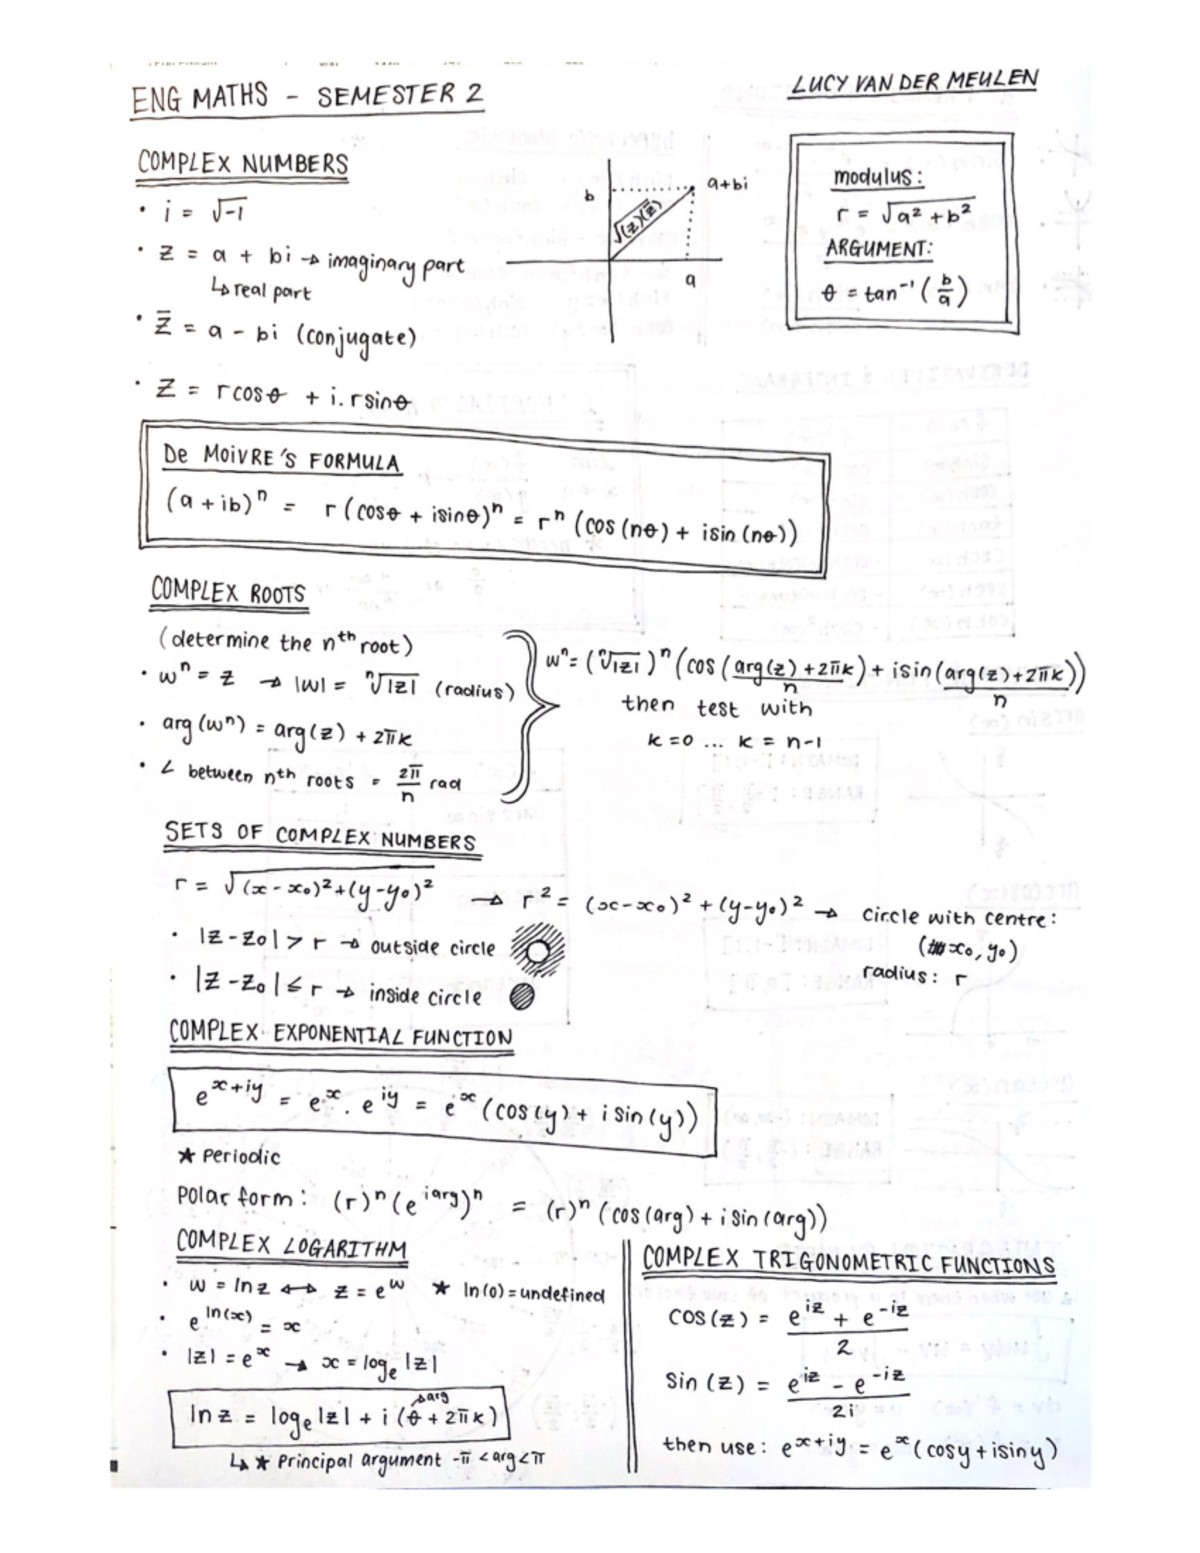 ENG MATHS - SEMESTER 2
LUCY VAN DER MEULEN
COMPLEX NUMBERS
• i = √-1
• z = a + bi → imaginary part
↳ real part
• z̄ = a - bi (conjugate)
• z = rcosθ + i.rsinθ
b
a+bi
√(z)(z̄)
a
modulus:
r = √a² + b²
ARGUMENT:
θ = tan⁻¹ (b/a)
De MOIVRE'S FORMULA
(a + ib)ⁿ = r (cosθ + isinθ)ⁿ = rⁿ (cos (nθ) + isin (nθ))
COMPLEX ROOTS
(determine the nth root)
• wⁿ = z → |w| = ⁿ√|z| (radius)
• arg (wⁿ) = arg(z) + 2πk
• ∠ between nth roots = 2π/n rad
wⁿ = (ⁿ√|z|)ⁿ (cos ((arg(z) + 2πk)/n) + isin ((arg(z)+2πk)/n))
then test with
k = 0 ... k = n-1
SETS OF COMPLEX NUMBERS
r = √(x - x₀)² + (y-y₀)² → r² = (x-x₀)² + (y-y₀)² → circle with centre:
(x₀, y₀)
radius: r
• |z-z₀| > r → outside circle
• |z-z₀| ≤ r → inside circle
COMPLEX EXPONENTIAL FUNCTION
e^(x+iy) = e^x . e^(iy) = e^x (cos(y) + i sin(y))
★ Periodic
Polar form: (r)ⁿ (e^(i arg))ⁿ = (r)ⁿ (cos(arg) + i sin(arg))
COMPLEX LOGARITHM
• w = ln z ↔ z = e^w ★ ln(0) = undefined
• e^(ln(x)) = x
• |z| = e^x → x = logₑ |z|
→ arg
ln z = logₑ |z| + i (θ + 2πk)
↳ ★ Principal argument -π < arg < π
COMPLEX TRIGONOMETRIC FUNCTIONS
cos(z) = (e^(iz) + e^(-iz))/2
Sin (z) = (e^(iz) - e^(-iz))/2i
then use: e^(x+iy) = e^x (cosy + isiny)